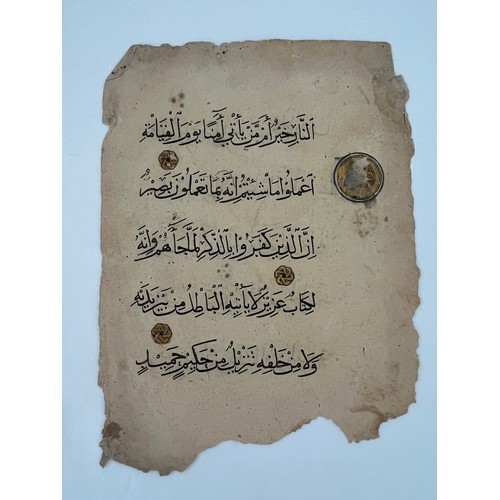 النَّارِ خَيْرٌ أَم مَّن يَأْتِي آمِنًا يَوْمَ الْقِيَامَةِ
اعْمَلُوا مَا شِئْتُمْ إِنَّهُ بِمَا تَعْمَلُونَ بَصِيرٌ
إِنَّ الَّذِينَ كَفَرُوا بِالذِّكْرِ لَمَّا جَاءَهُمْ وَإِنَّهُ
لَكِتَابٌ عَزِيزٌ لَا يَأْتِيهِ الْبَاطِلُ مِنْ بَيْنِ يَدَيْهِ
وَلَا مِنْ خَلْفِهِ تَنْزِيلٌ مِنْ حَكِيمٍ حَمِيدٍ